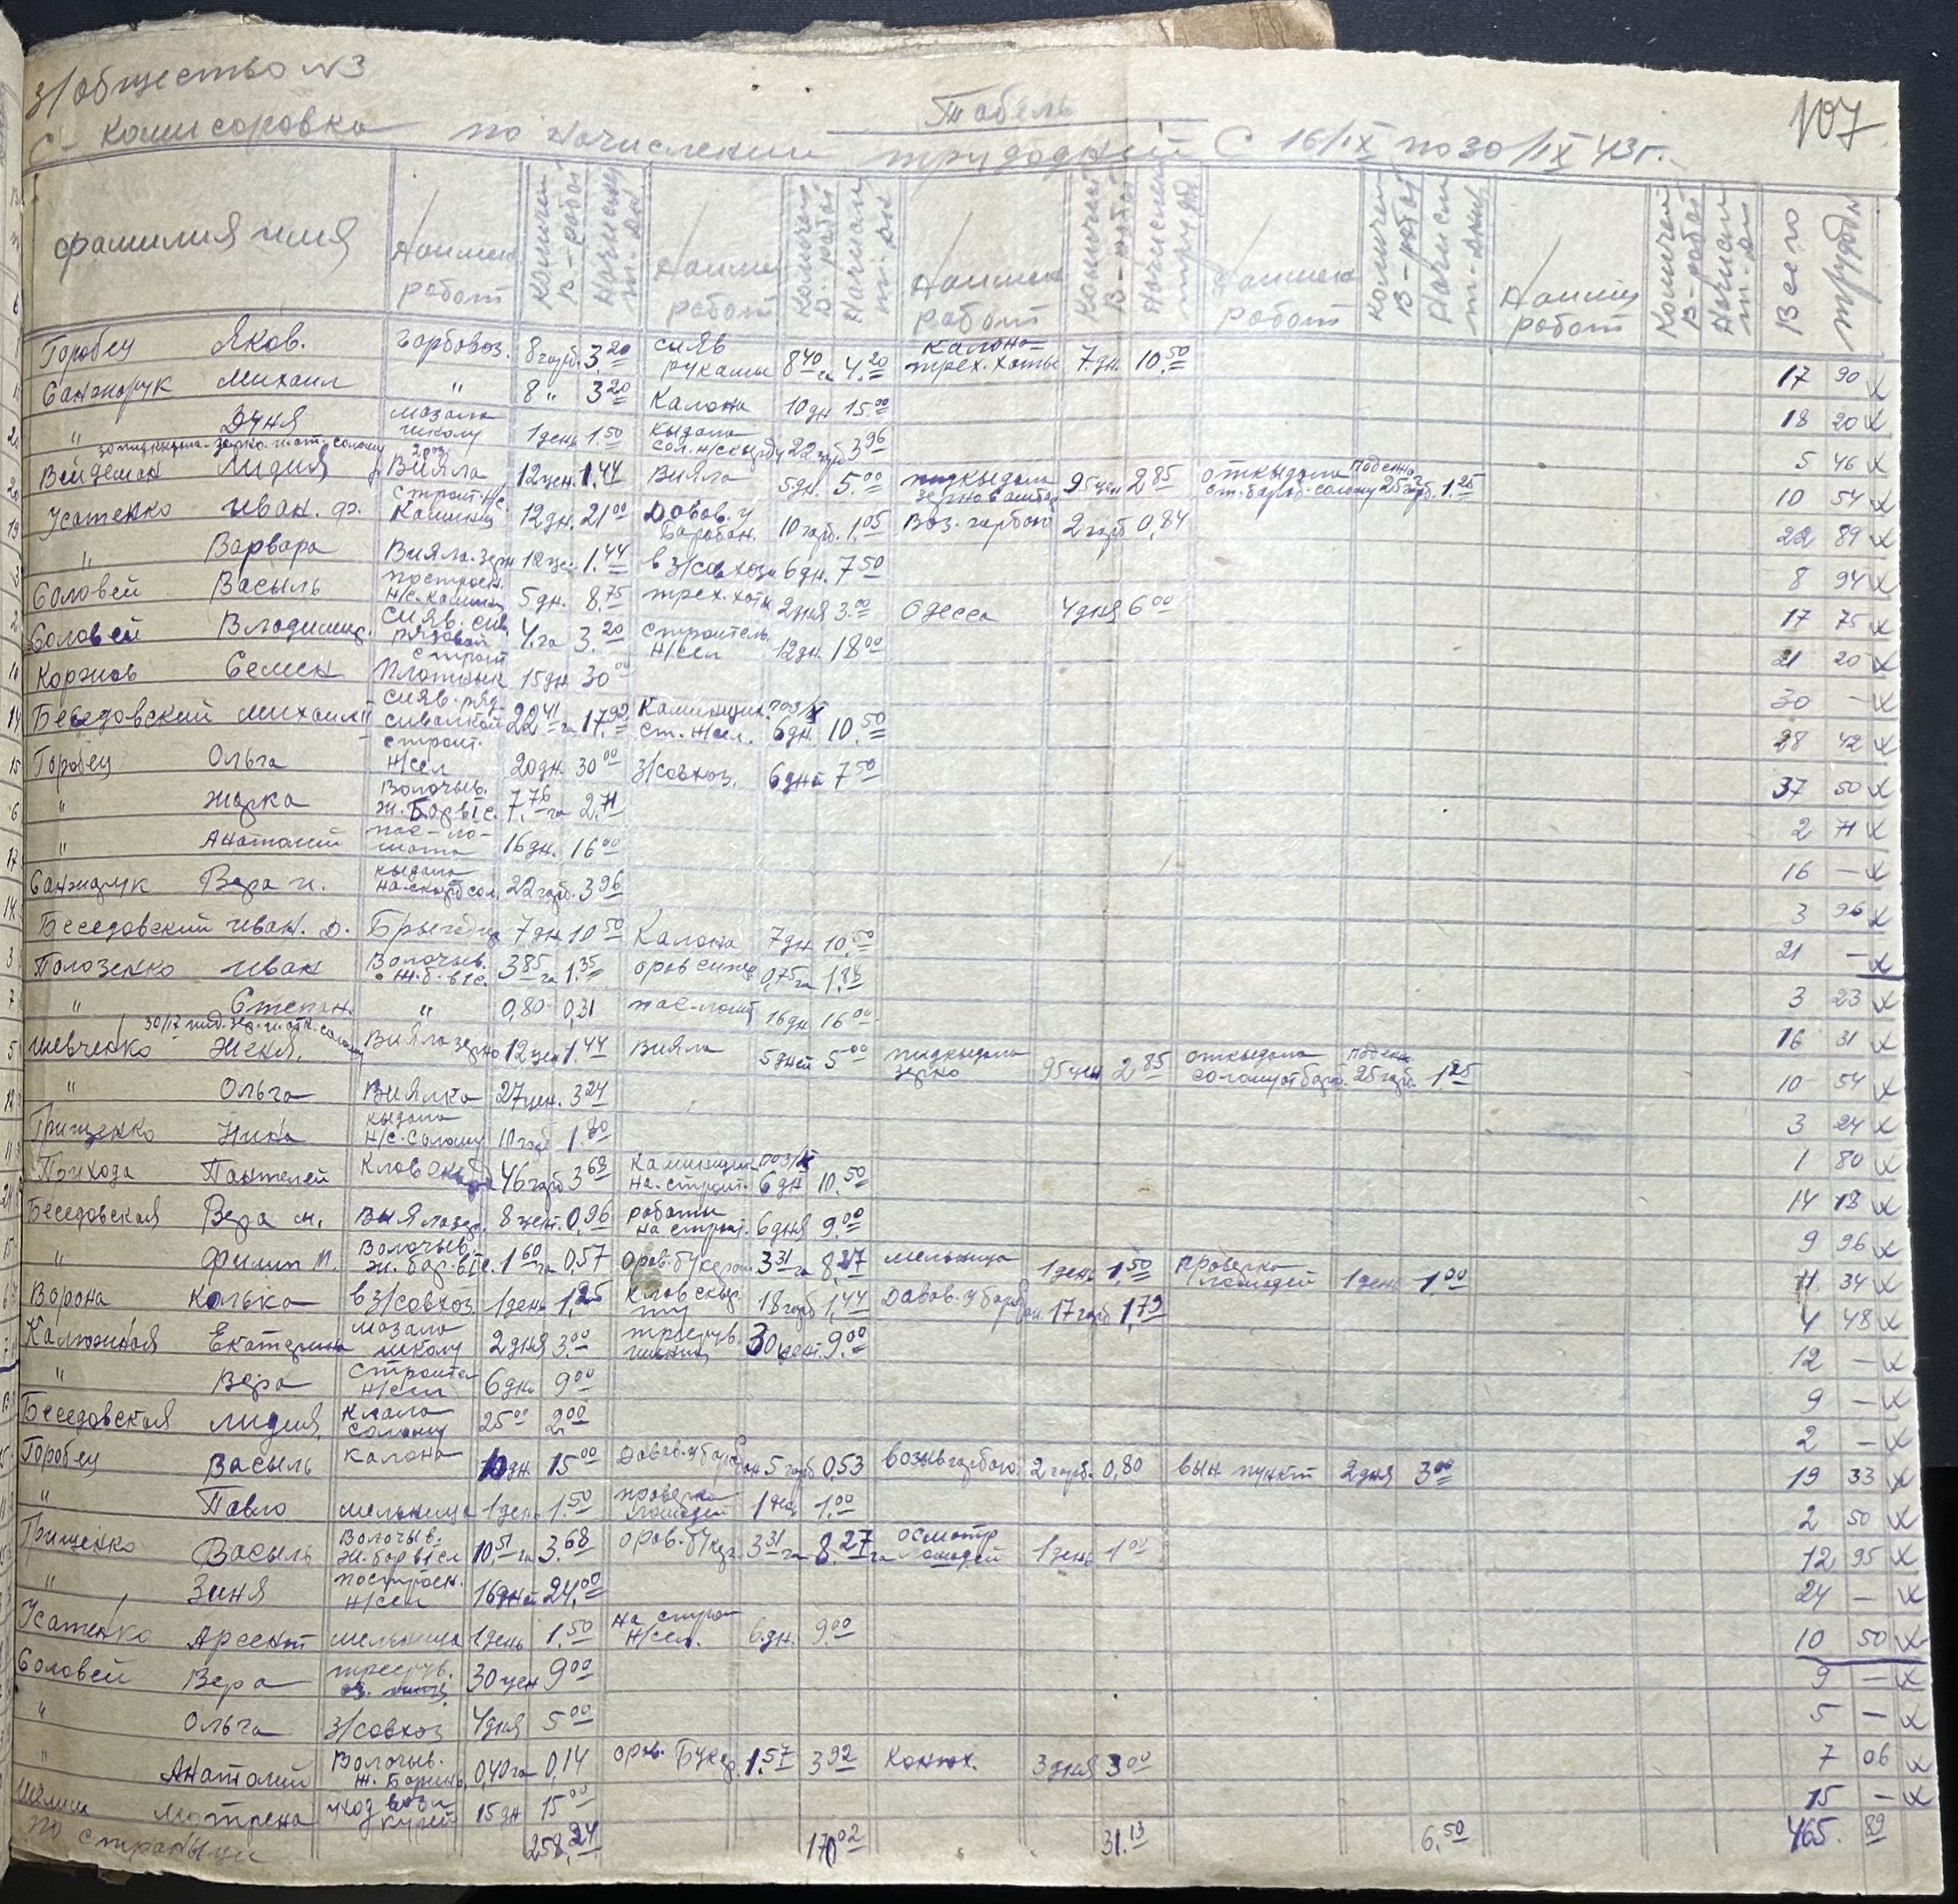 з/общество №3
107
Табель
С- Комисоровка по начислении трудодней С 16/IX по 30/IX 43 г.
Фамилия имя Наимен работ Количеств В-работ Начислен т-дн Наимен работ Количеств В-работ Начислен т-дн Наимен работ Количеств В-работ Начислен труд Наимен работ Количеств В-работ Начислен т-дни Наимен работ Количеств В-работ Начисл т-дн Всего трудодн
Горобец Яков. Гарбовоз. 8 гарб. 3.20 сияв рукамы 8.40 га 4.20 Калона трех. хаты 7 дн. 10.50 17 90 х
Санжарук Михаил " 8 " 3.20 Калона 10 дн 15.00 18 20 х
" Дуня мазала школу 1 день 1.50 кыдала сол. н/скырду 22 гарб 3.96 5 46 х
Вейдеман Лидия Вияла 12 цен. 1.44 Вияла 5 дн. 5.00 пидкыдала зерно 95 цен 2.85 откыдала от. бараб. солому 25 гарб. 1.25 10 54 х
Усатенко Иван. Ф. Строит. Н/с. Каминщ 12 дн. 21.00 Довов. у Барабан. 10 гарб. 1.05 Воз. гарбою 2 гарб 0,84 22 89 х
" Варвара Вияла зерн 12 це. 1.44 в з/совхозе 6 дн. 7.50 8 94 х
Соловей Васыль построен. Н/с. Каминщ 5 дн. 8.75 трех. хаты 2 дня 3.00 Одесса 4 дня 6.00 17 75 х
Соловей Владимир. Сияв. сив. рядовой 4. га 3.20 строитель. Н/сел 12 дн. 18.00 21 20 х
Коржов Семен строит Плотнык 15 дн 30.00 30 — х
Беседовский Михаил сияв. ряд. сивалкой 22.41 га 17.92 Каминщик ст. Н/сел. 6 дн. 10.50 28 42 х
Горобец Ольга строит. Н/сел 20 дн. 30.00 з/совхоз. 6 дней 7.50 37 50 х
" Жорка Волочыв. Ж. Бор в 1 с. 7.76 га 2.71 2 71 х
" Анатолий пас-ло-шата 16 дн. 16.00 16 — х
Санжарук Вера И. кыдала на скирд сол. 22 гарб. 3.96 3 96 х
Беседовский Иван. Д. Брыгадир 7 дн 10.50 Калона 7 дн 10.50 21 — х
Полозенко Иван Волочыв. Ж. б. в 1 с. 3.85 га 1.35 0,75 га 1.88 3 23 х
" Степан. " 0,80 0,31 пас-лошат 16 дн 16.00 16 31 х
Шевченко Женя. Вияла зерно 12 цен 1.44 Вияла 5 дней 5.00 пидкыдала зерно 95 цен 2.85 откыдала солому от бараб. 25 гарб. 1.25 10 54 х
" Ольга Виялка 27 цен. 3.24 3 24 х
Грищенко Нина кыдала Н/с. Солому 10 гарб 1.80 1 80 х
Прихода Пантелей Клав скирд 46 гарб 3.68 Каминщик на строит. 6 дн 10.50 14 18 х
Беседовская Вера М. Выяла зер. 8 цент. 0,96 работы на строит. 6 дня 9.00 9 96 х
" Филип М. Волочыв. Ж. бор. в 1 с. 1.60 га 0,57 Орав. букером 3.31 га 8,27 мельница 1 день 1.50 проверка лошадей 1 день 1.00 11. 34 х
Ворона Колька в з/совхоз 1 день 1,25 Клав скыр- ту 18 гарб 1,44 Давав. у барабан. 17 гарб 1,79 4 48 х
Калюжная Екатерина мазала школу 2 дня 3.00 триерув. пшениц 30 цент. 9.00 12 — х
" Вера Строител Н/сел 6 дн. 9.00 9 — х
Беседовская Лидия. Клала Солому 25.00 2.00 2 — х
Горобец Васыль Калона 10 дн. 15.00 Давав. у барабан 5 гарб 0,53 возыв гарбою. 2 гарб. 0,80 вын пункт 2 дня 3.00 19 33 х
" Павло мельница 1 день 1.50 проверка лошадей 1 ден 1.00 2 50 х
Грищенко Васыль Волочыв. Ж. бор в 1 сл 10.51 га 3.68 Орав. букер. 3.31 га 8.27 осмотр лошадей 1 день 1.00 12 95 х
" Зиня построен. Н/сел 16 дней 24.00 24 — х
Усатенко Арсент мельница 1 день 1.50 на строи Н/сел. 6 дн. 9.00 10 50 х
Соловей Вера триерув. 30 цен 9.00 9 — х
" Ольга з/совхоз 4 дня 5.00 5 — х
" Анатолий Волочыв. Ж. Бороны 0,40 га 0,14 орав. Букер. 1.57 3.92 Конюх. 3 дня 3.00 7 06 х
Мотрена уход курей 15 дн 15.00 15 — х
по страныци 258.24 170.02 31.13 6.50 465. 89